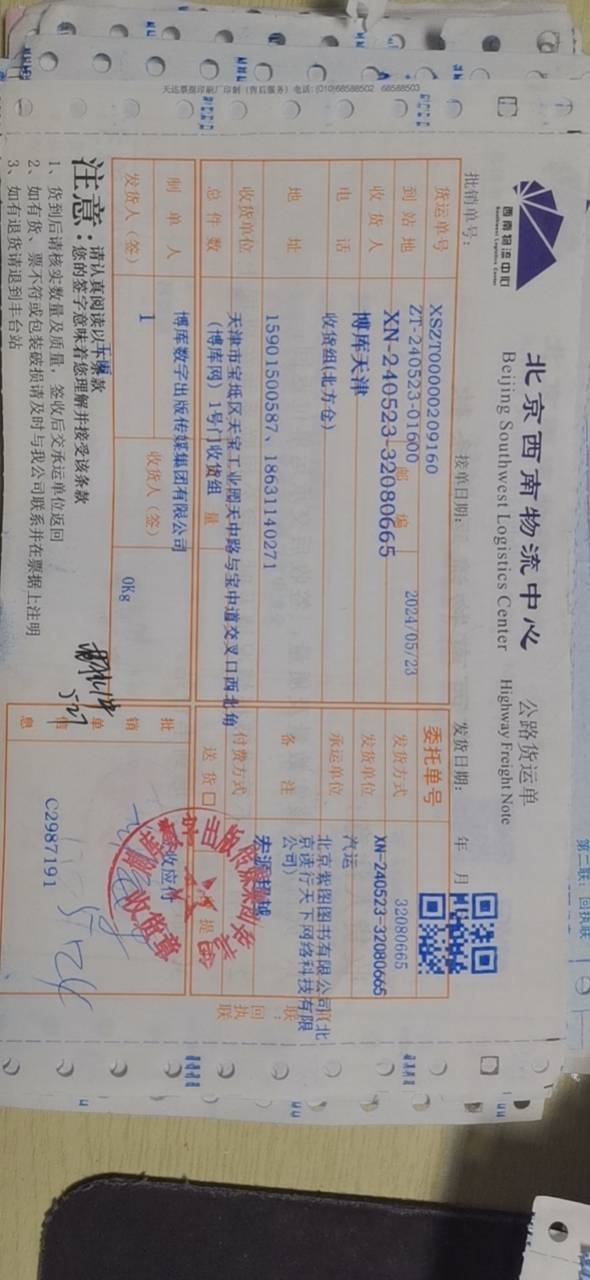 天达票据印刷厂印制 (售后服务) 电话: (010)68588502 68588503
西南物流中心
Southwest Logistics Center
北京西南物流中心 公路货运单
Beijing Southwest Logistics Center Highway Freight Note
批销单号: 接单日期: 发货日期: 年 月
货运单号 XSZT00000209160 委托单号 32080665
ZT-240523-01600 XN-240523-32080665
到站地 邮编 2024/05/23 发货方式 汽运
XN-240523-32080665
收货人 博库天津 发货单位 北京紫图图书有限公司(北京读行天下网络科技有限公司)
电话 收货组(北方仓) 承运单位
地址 15901500587、18631140271 备注
收货单位 天津市宝坻区天宝工业园天中路与宝中道交叉口西北角(博库网)1号门收货组 付费方式
总件数 量 送货口 提
制单人 博库数字出版传媒集团有限公司
发货人(签) 1 收货人(签) 0Kg
批销单信息 C2987191
收货章
回执联
第二联: 回执联
注意: 请认真阅读以下条款
您的签字意味着您理解并接受该条款
1、货到后请核实数量及质量，签收后交承运单位返回
2、如有货、票不符或包装破损请及时与我公司联系并在票据上注明
3、如有退货请退到丰台站